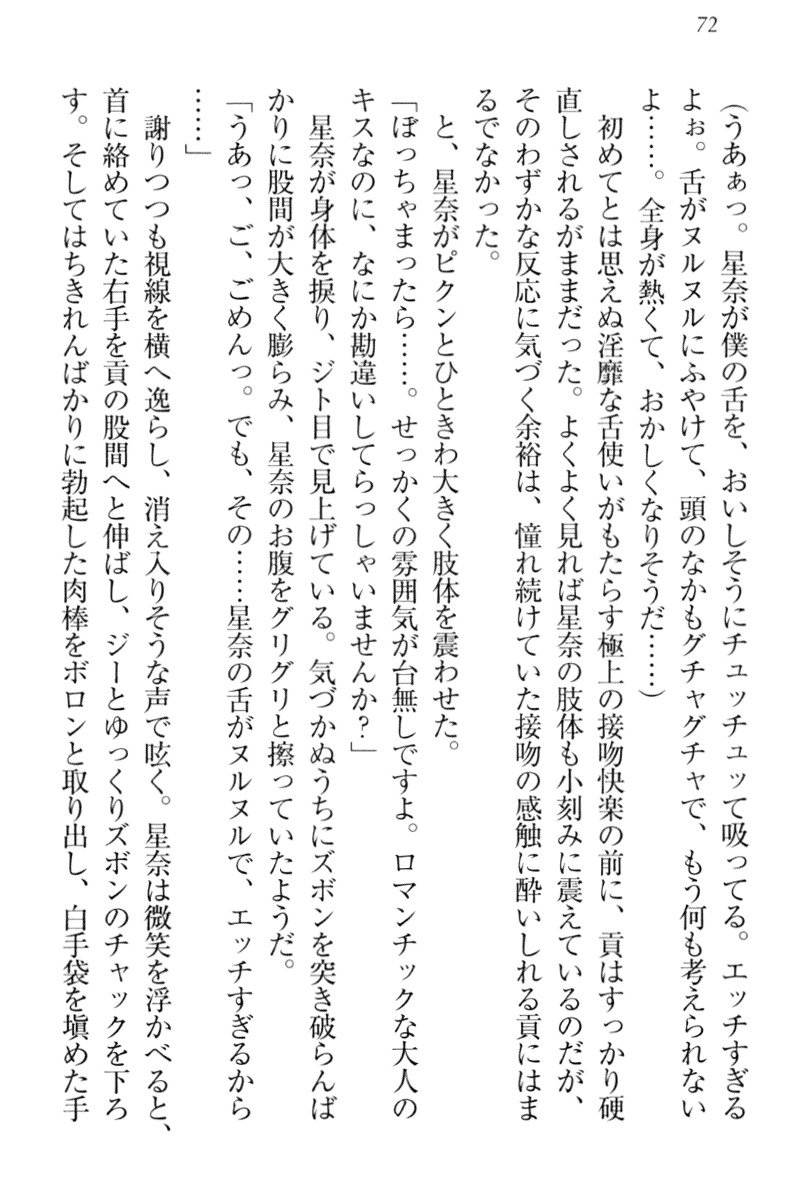 72
(うあぁっ。星奈が僕の舌を、おいしそうにチュッチュッて吸ってる。エッチすぎる
よぉ。舌がヌルヌルにふやけて、頭のなかもグチャグチャで、もう何も考えられない
よ……。全身が熱くて、おかしくなりそうだ……)
初めてとは思えぬ淫靡な舌使いがもたらす極上の接吻快楽の前に、貢はすっかり硬
直しされるがままだった。よくよく見れば星奈の肢体も小刻みに震えているのだが、
そのわずかな反応に気づく余裕は、憧れ続けていた接吻の感触に酔いしれる貢にはま
るでなかった。
と、星奈がピクンとひときわ大きく肢体を震わせた。
「ぼっちゃまったら……。せっかくの雰囲気が台無しですよ。ロマンチックな大人の
キスなのに、なにか勘違いしてらっしゃいませんか?」
星奈が身体を捩り、ジト目で見上げている。気づかぬうちにズボンを突き破らんば
かりに股間が大きく膨らみ、星奈のお腹をグリグリと擦っていたようだ。
「うあっ、ご、ごめんっ。でも、その……星奈の舌がヌルヌルで、エッチすぎるから
……」
謝りつつも視線を横へ逸らし、消え入りそうな声で呟く。星奈は微笑を浮かべると、
首に絡めていた右手を貢の股間へと伸ばし、ジーとゆっくりズボンのチャックを下ろ
す。そしてはちきれんばかりに勃起した肉棒をボロンと取り出し、白手袋を塡めた手